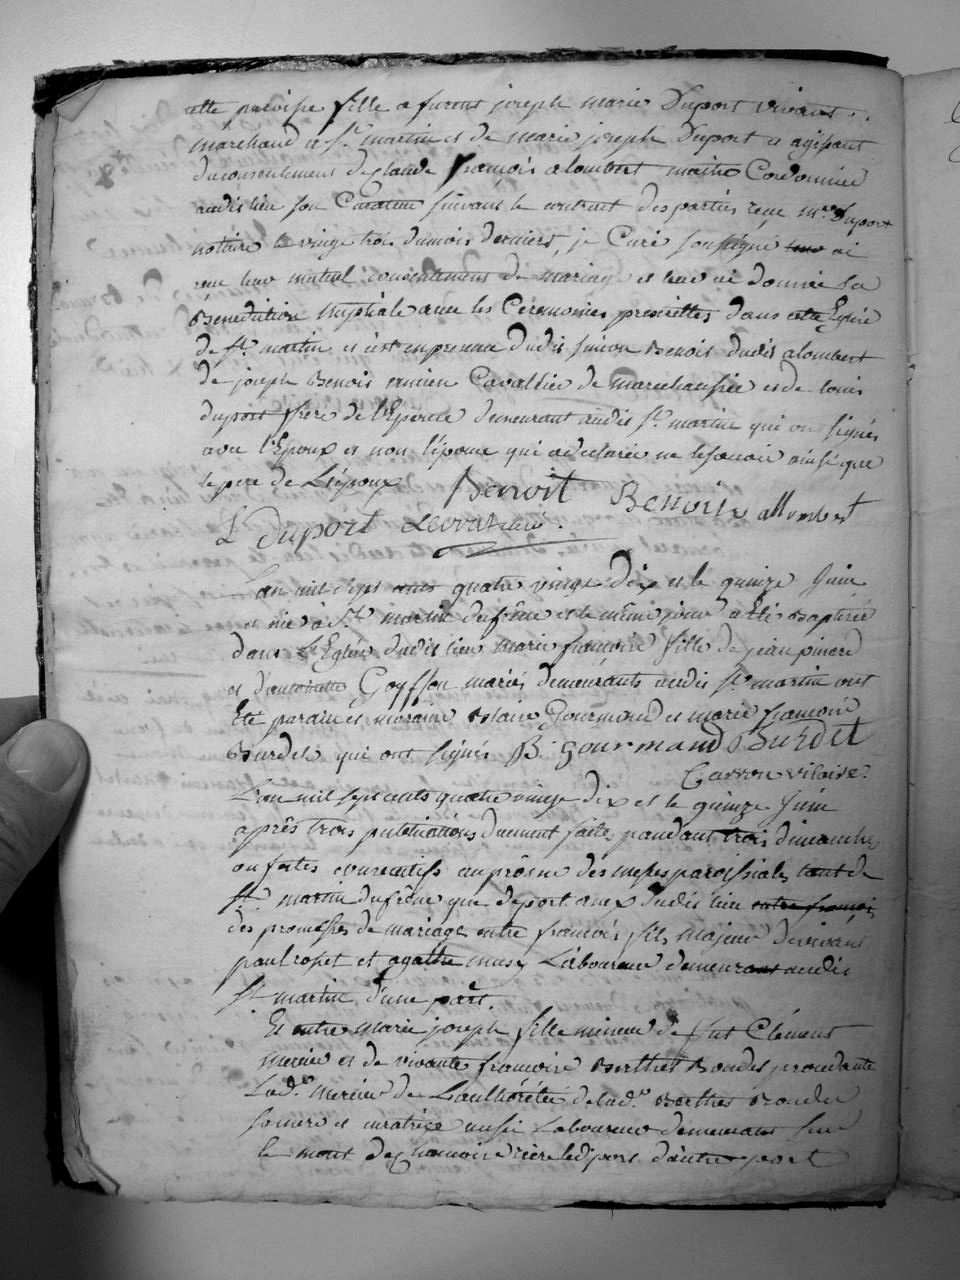 fille a furent joseph marie Duport vivant
marchand a St. martin et de marie joseph Duport a agissant
du consentement de Claude françois alombert maitre Cordonnier
audit lieu son Curateur suivant le contrat des parties reçu mre Duport
notaire le vingt trois du mois dernier, je Curé soussigné ai
reçu leur mutuel consentement de mariage et leur ai donné la
Benediction Nuptiale avec les Ceremonies prescrittes dans cette Eglise
de St. martin et c'est en presence dudit simeon Benoit dudit alombert
de joseph Benoit ancien Cavallier de marechaussée et de louis
duport frere de l'Epouse demeurant audit St. martin qui ont signés
avec l'Epoux et non l'épouse qui a declarée ne le sçavoir ainsi que
le pere de L'époux Benoit Benoit allombert
L Duport
L'an mil sept cents quatre vingt dix et le quinze juin
est née à St. martin du frêne et le même jour a Eté Baptisée
dans l'Eglise dudit lieu marie françoise fille de jean pinard
et d'antoinette Goyffon mariés demeurants audit St. martin ont
Eté parain et maraine Blaise Gourmand et marie françoise
Burdet qui ont signés B. gourmand Burdet
Carron vicaire.
L'an mil sept cents quatre vingt dix et le quinze juin
après trois publications duement faites pendant trois dimanches
ou festes consecutifs au prône des messes paroissiales tant de
St. martin du frêne que de port aux dudit lieu entre françois
des promesses de mariage entre françois fils Majeur de vivant
paul ropet et agathe Laboureur demeurant audit
St. martin d'une part.
Et entre Marie joseph fille mineure de fut Clément
mercier et de vivante françoise Berthet Bondet procedante
Lad.e Mercier de L'authórité de lad.e Berthet Bondet
sa mere et curatrice aussi Laboureur demeurant sur
le mont de Chamoise riere led. port d'autre part